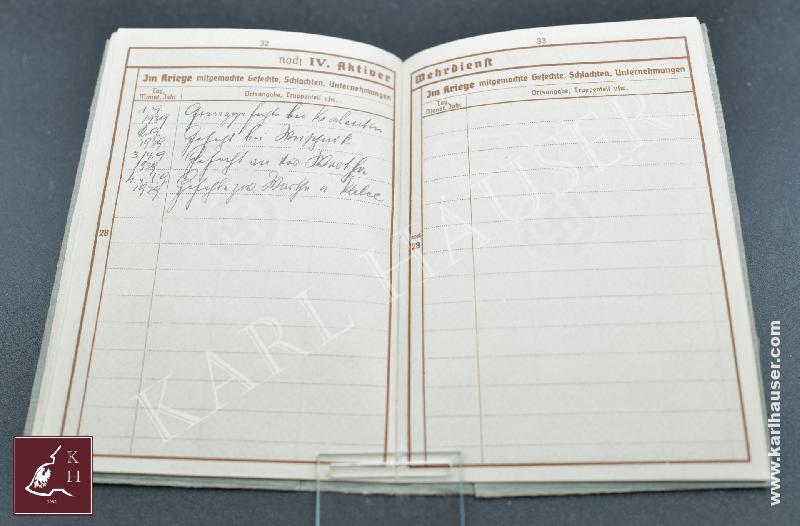 32
noch IV. Aktiver
Im Kriege mitgemachte Gefechte, Schlachten, Unternehmungen
Tag, Monat, Jahr
Ortsangabe, Truppenteil usw.
1.9.
1939
Grenzgefechte bei
1939
Gefecht bei
3./4.9.
1939
Gefecht an der Warthe
1939
Gefechte zw. Warthe u.
28
33
Wehrdienst
Im Kriege mitgemachte Gefechte, Schlachten, Unternehmungen
Tag, Monat, Jahr
Ortsangabe, Truppenteil usw.
noch 28
KARL HAUSER
K H
www.karlhauser.com